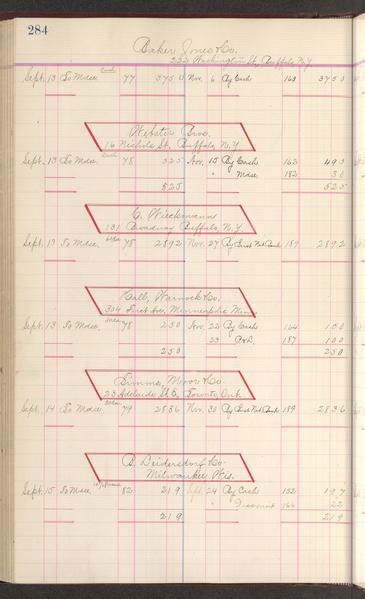 284
Baker, Jones & Co.
Washington St, Buffalo N.Y.
Sept. 13 To Mdse. 77 3750 Nov. 6 By Cash 160 3750
Webster Bros.
16 Nichols St, Buffalo, N.Y.
Sept. 13 To Mdse. 78 525 Nov. 15 By Cash 163 495
" Mdse. 182 30
525 525
131 Broadway Buffalo, N.Y.
Sept. 13 To Mdse. 78 2892 Nov. 27 By First Nat Bank 189 2892
Warnock & Co.
304 First Ave, Minneapolis, Minn.
Sept. 13 To Mdse. 78 250 Nov. 22 By Cash 164 150
23 187 100
250 250
Simms, & Co.
23 Adelaide St E, Toronto, Ont.
Sept. 14 To Mdse 79 2836 Nov. 30 By First Nat Bank 189 2836
B. Deidersdorf & Co.
Milwaukee, Wis.
Sept. 15 To Mdse 82 219 Sept. 24 By Cash 152 197
" Discount 166 22
219 219